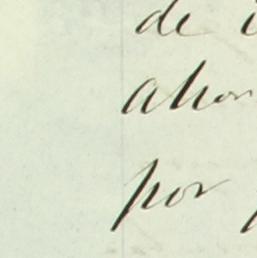 de
ahor
por